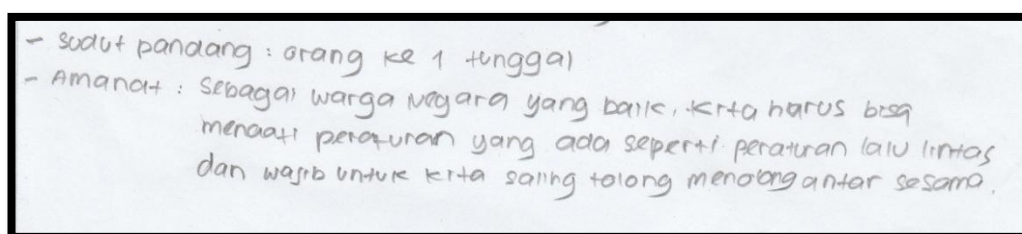 - Sudut pandang : orang ke 1 tunggal
- Amanat : Sebagai warga Negara yang baik, kita harus bisa
menaati peraturan yang ada seperti peraturan lalu lintas
dan wajib untuk kita saling tolong menolong antar sesama.